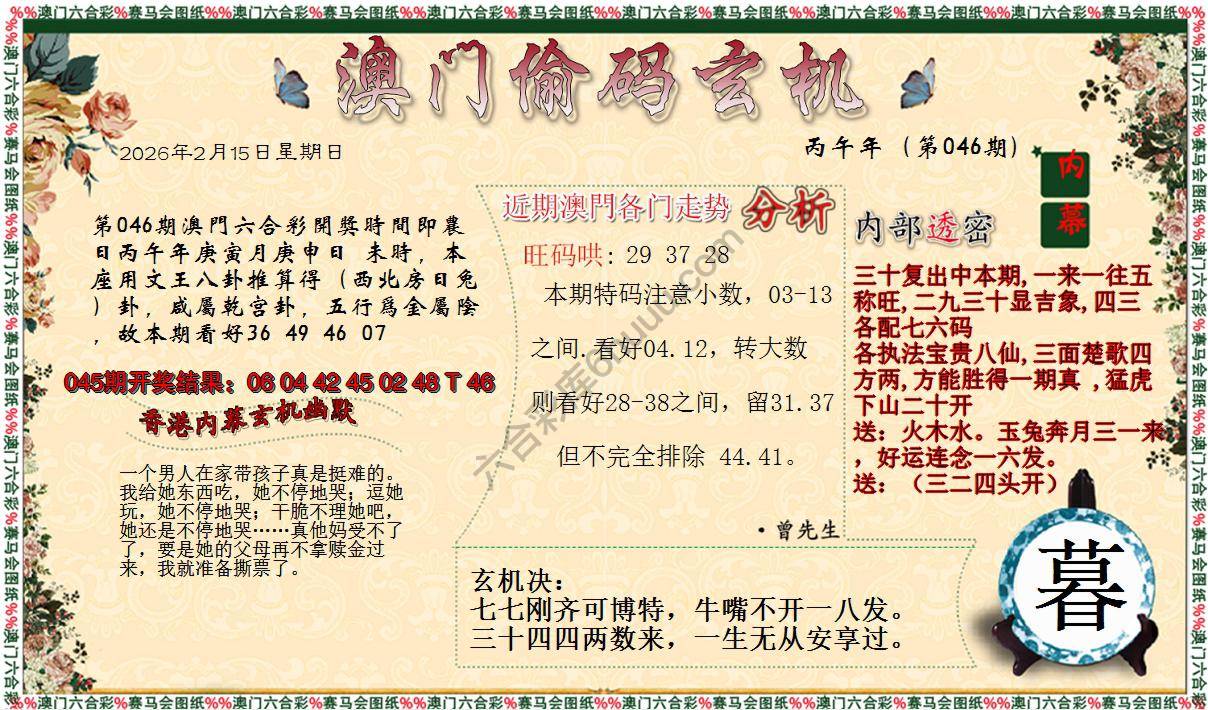 %%澳门六合彩%赛马会图纸%%澳门六合彩%赛马会图纸%%澳门六合彩%赛马会图纸%%澳门六合彩%赛马会图纸%%澳门六合彩%赛马会图纸%%澳门六合彩%赛马会图纸%%
澳门偷码玄机
2026年2月15日星期日
丙午年（第046期）
内
幕
第046期澳門六合彩開獎時間即農
日丙午年庚寅月庚申日 未時，本
座用文王八卦推算得（西北房日兔
）卦，咸屬乾宫卦，五行爲金屬陰
，故本期看好36 49 46 07
045期开奖结果：06 04 42 45 02 48 T 46
香港内幕玄机幽默
一个男人在家带孩子真是挺难的。
我给她东西吃，她不停地哭；逗她
玩，她不停地哭；干脆不理她吧，
她还是不停地哭……真他妈受不了
了，要是她的父母再不拿赎金过
来，我就准备撕票了。
近期澳門各门走势 分析
旺码哄：29 37 28
本期特码注意小数，03-13
之间.看好04.12，转大数
则看好28-38之间，留31.37
但不完全排除 44.41。
·曾先生
内部透密
三十复出中本期,一来一往五
称旺,二九三十显吉象,四三
各配七六码
各执法宝贵八仙,三面楚歌四
方两,方能胜得一期真 ,猛虎
下山二十开
送：火木水。玉兔奔月三一来
，好运连念一六发。
送：（三二四头开）
玄机决：
七七刚齐可博特，牛嘴不开一八发。
三十四四两数来，一生无从安享过。
暮
%%澳门六合彩%赛马会图纸%%澳门六合彩%赛马会图纸%%澳门六合彩%赛马会图纸%%澳门六合彩%赛马会图纸%%澳门六合彩%赛马会图纸%%澳门六合彩%赛马会图纸%%